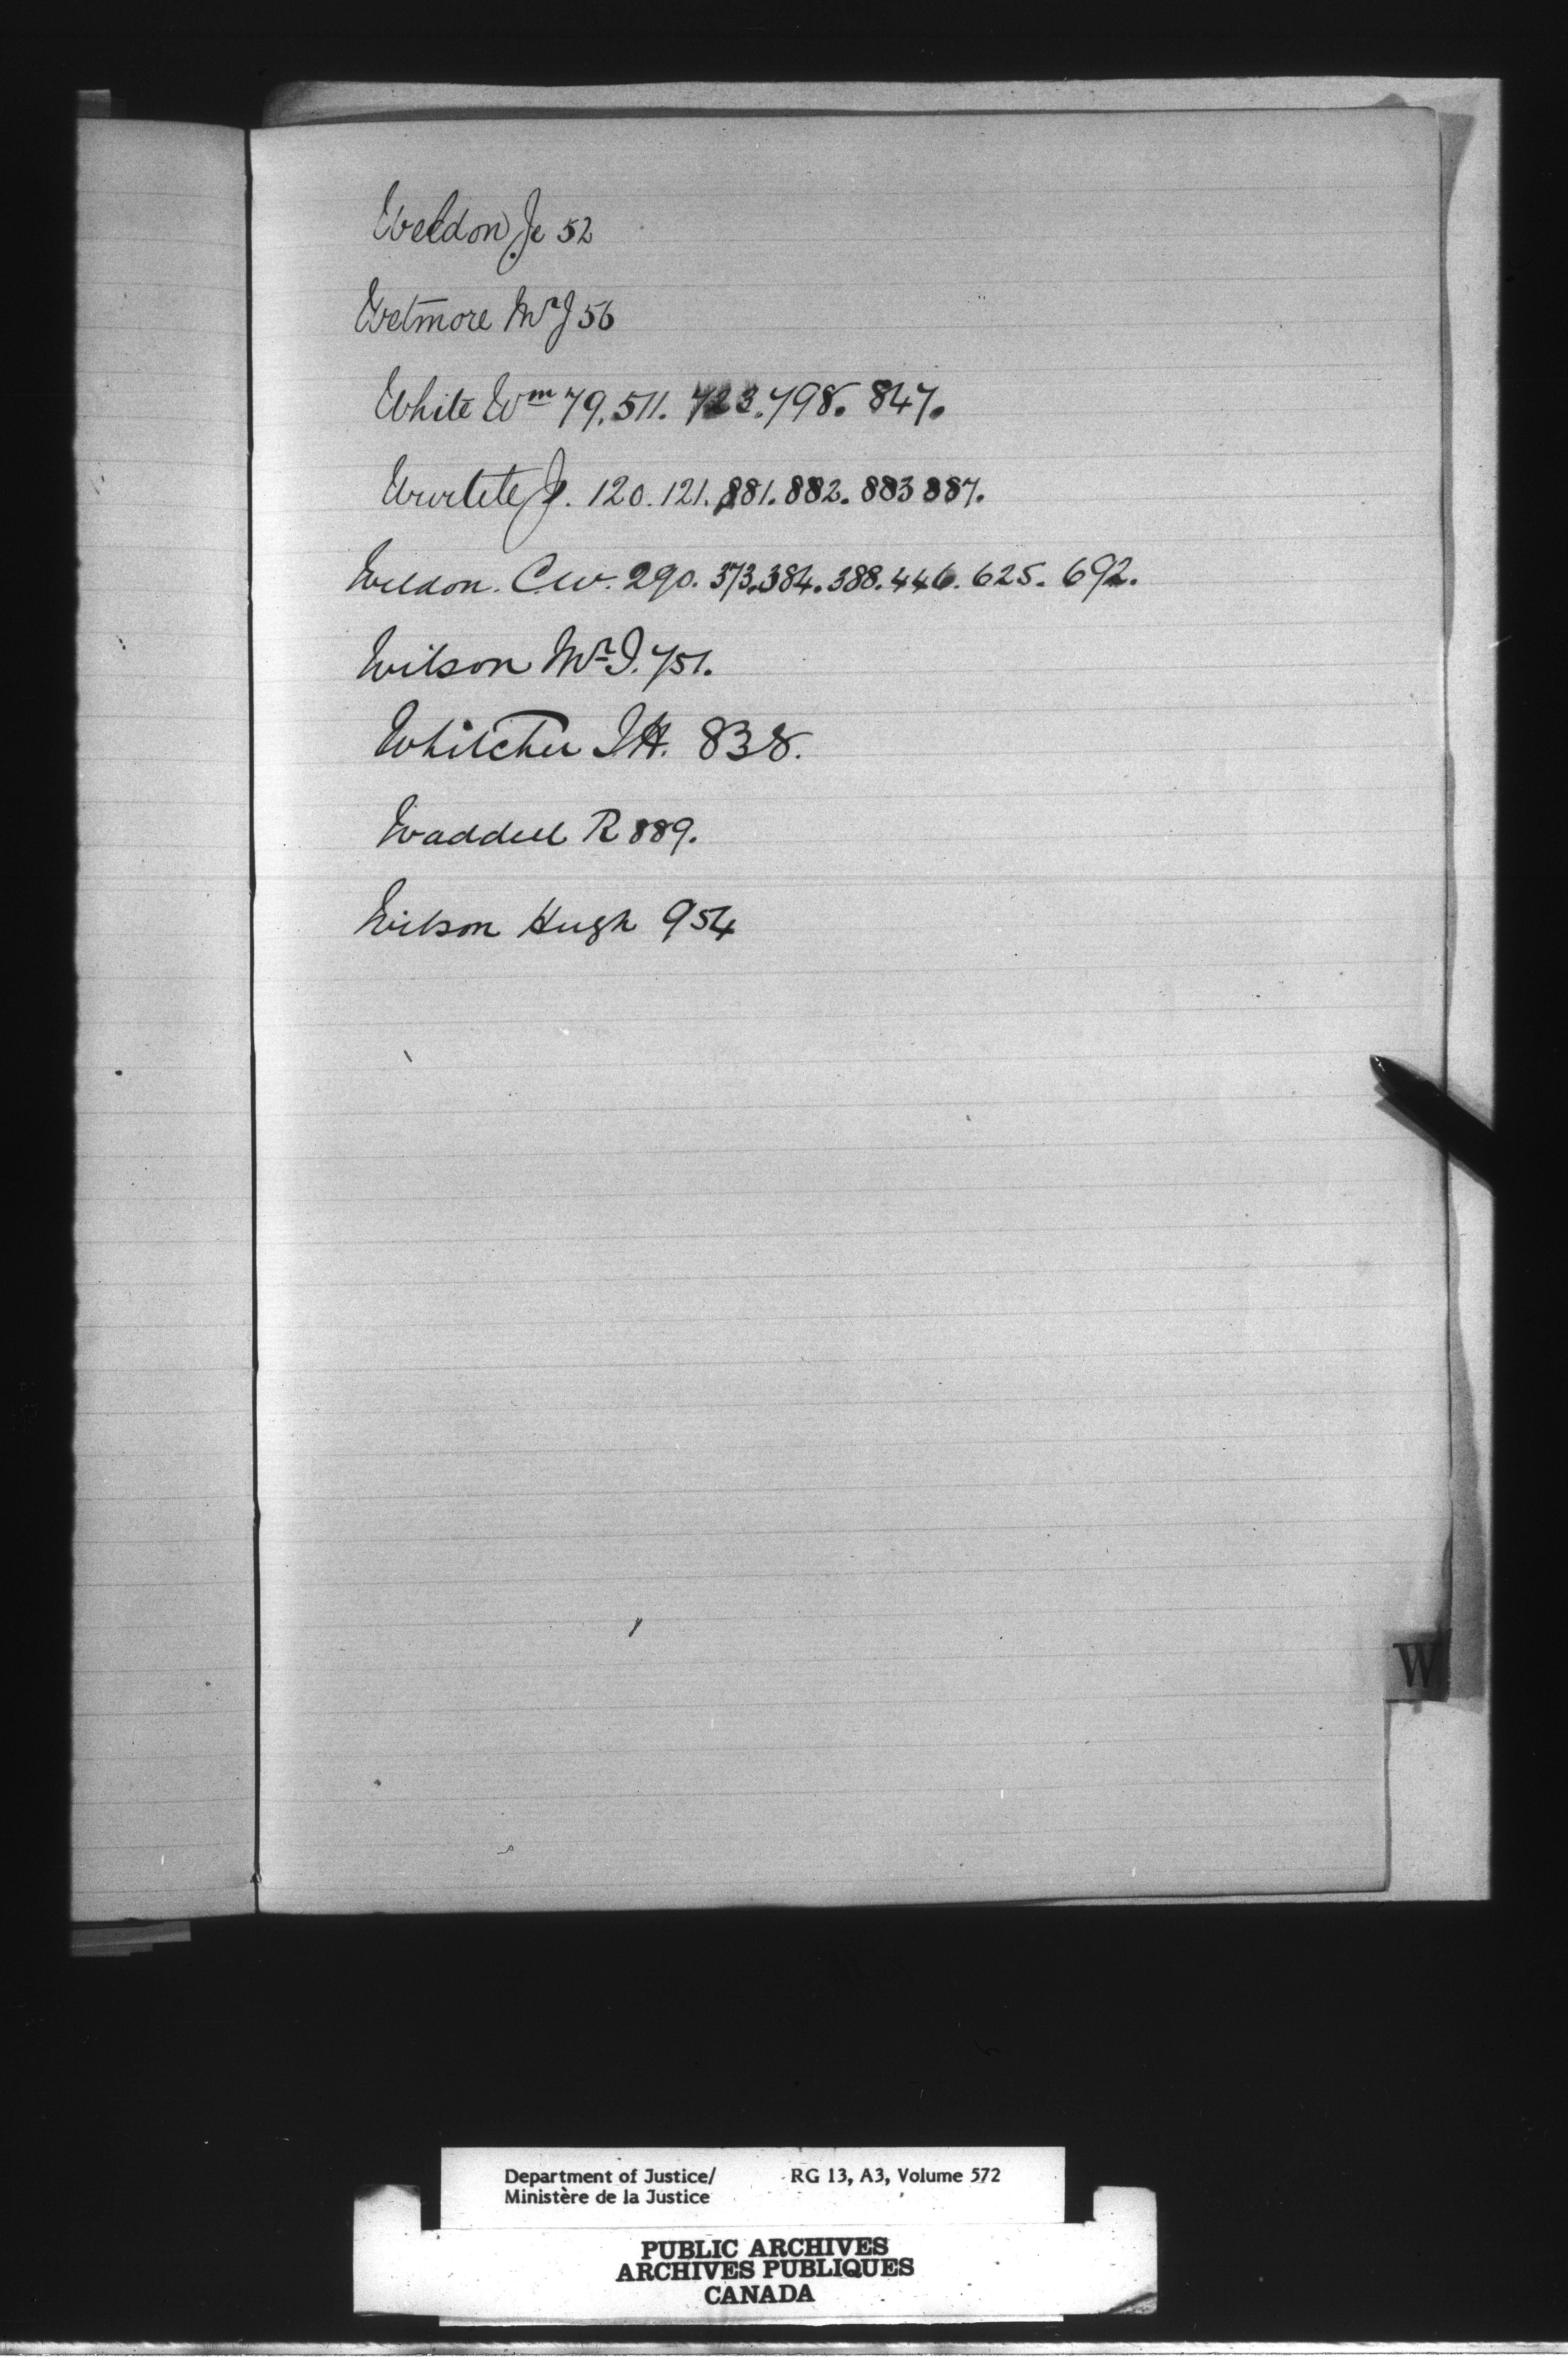 Weldon Je 52
Wetmore Mr J 56
White Wm 79. 511. 723. 798. 847.
Wurtele J. 120. 121. 881. 882. 883 887.
Weldon. C.W. 290. 373. 384. 388. 446. 625. 692.
Wilson Mr J. 751.
Whitcher J.H. 838.
Waddell R 889.
Wilson Hugh 954
W
Department of Justice/ RG 13, A3, Volume 572
Ministère de la Justice
PUBLIC ARCHIVES
ARCHIVES PUBLIQUES
CANADA